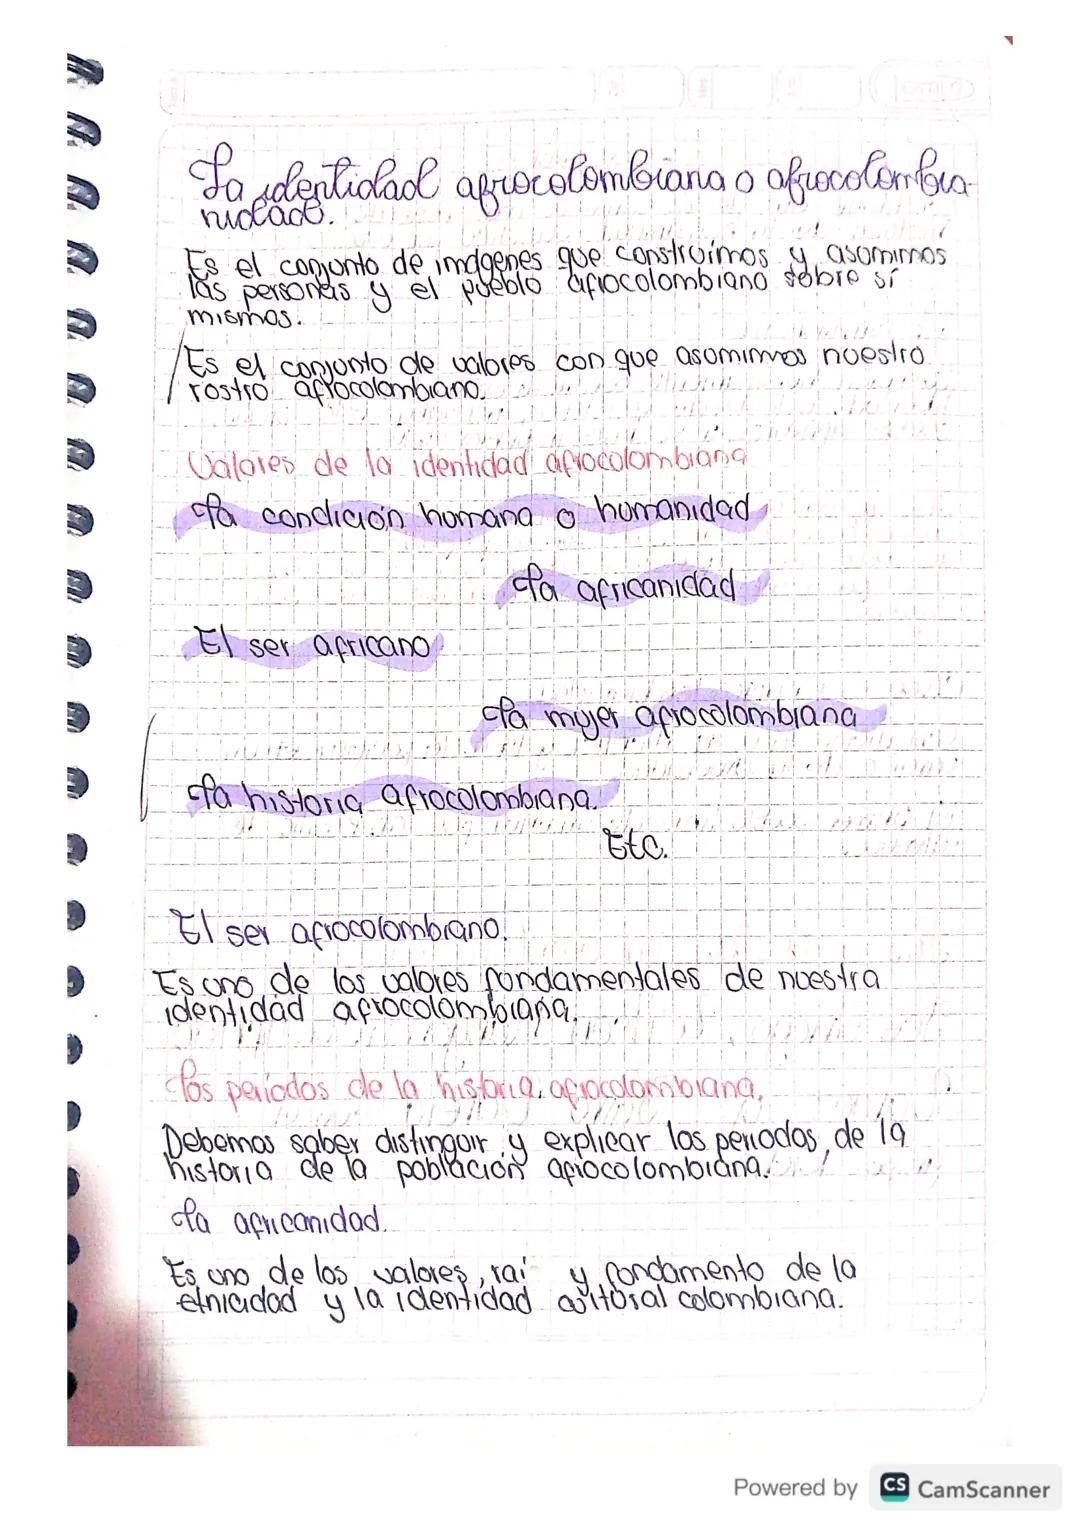 La identidad afrocolombiana o afrocolombia-
nidad.
Es el conjunto de imágenes que construimos y asumimos
las personas y el pueblo afrocolombiano sobre sí
mismos.
Es el conjunto de valores con que asumimos nuestro
rostro afrocolombiano.
Valores de la identidad afrocolombiana
La condición humana o humanidad
La africanidad
El ser africano
La mujer afrocolombiana
La historia afrocolombiana.
Etc.
El ser afrocolombiano.
Es uno de los valores fundamentales de nuestra
identidad afrocolombiana.
Los periodos de la historia afrocolombiana.
Debemos saber distinguir y explicar los periodos de la
historia de la población afrocolombiana.
La africanidad.
Es uno de los valores, rai y fondamento de la
etnicidad y la identidad cultural colombiana.
Powered by CS CamScanner